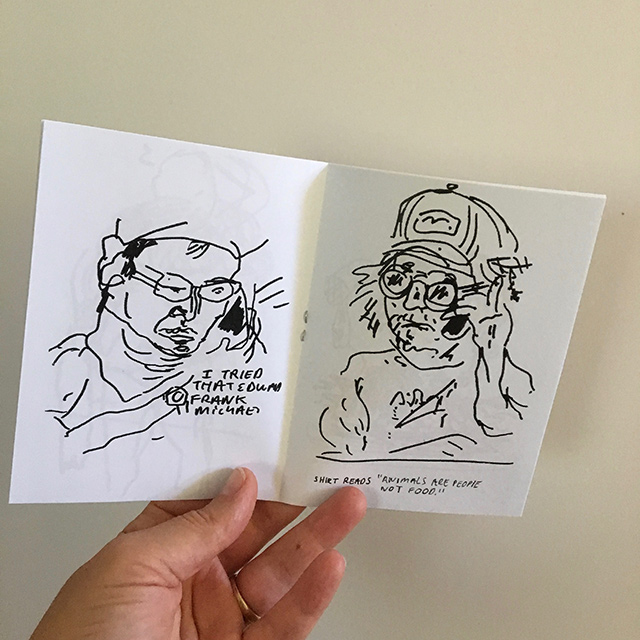 I TRIED
THAT EDWARD
FRANK
MICHAEL
SHIRT READS "ANIMALS ARE PEOPLE
NOT FOOD."